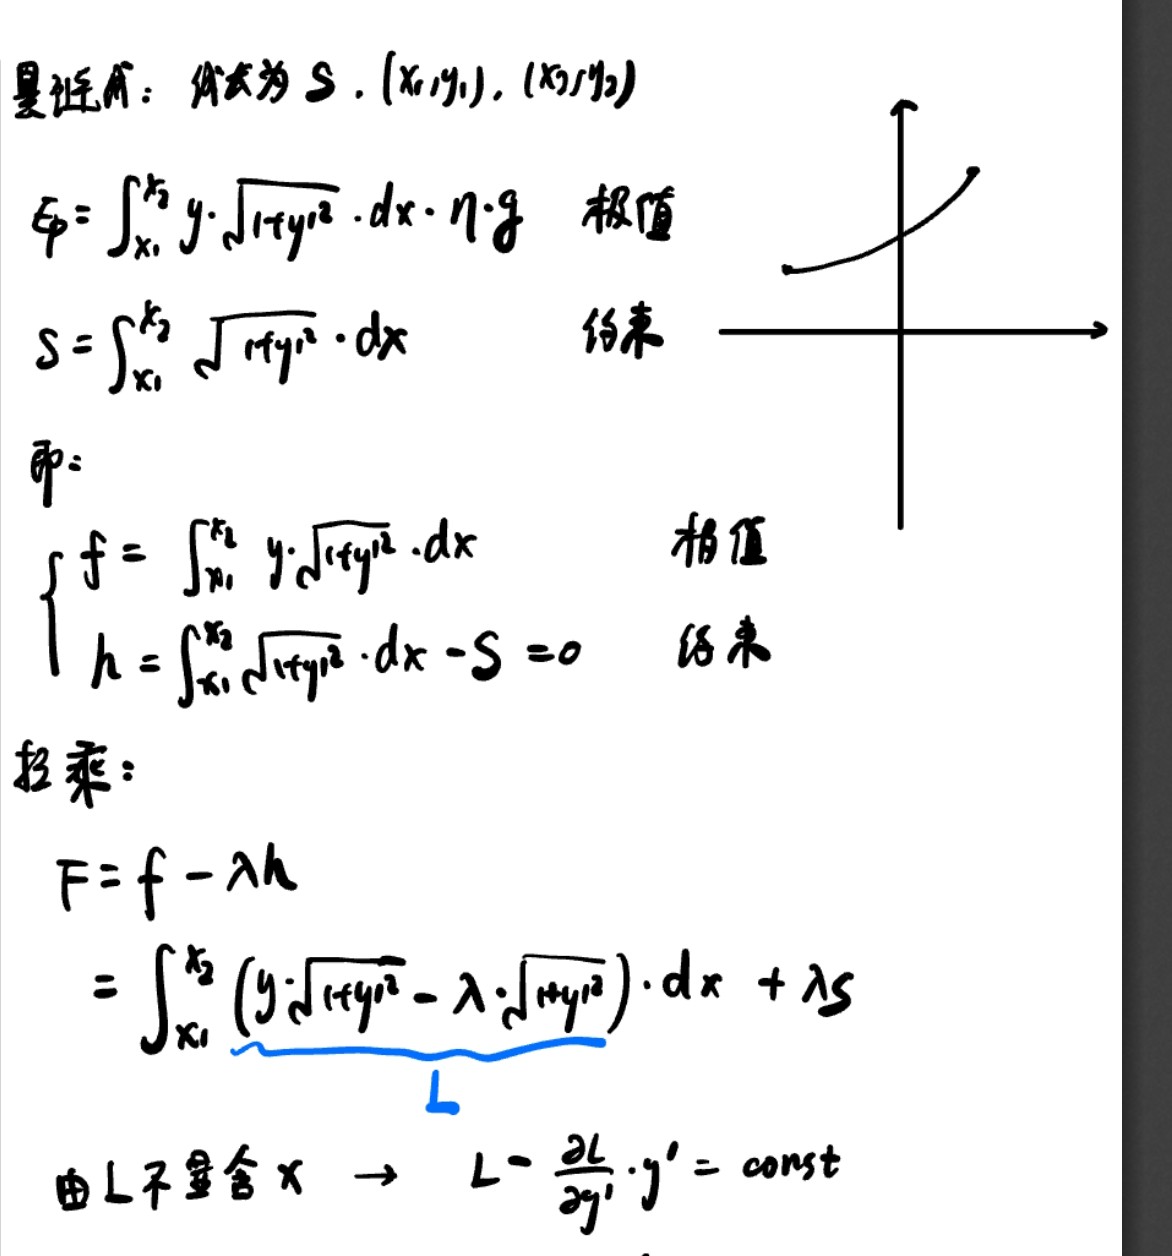 悬链线：线长为 S . (x₁,y₁), (x₂,y₂)
Ep = ∫_{x₁}^{x₂} y·√(1+y'²) · dx · η·g 极值
S = ∫_{x₁}^{x₂} √(1+y'²) · dx 约束
即：
f = ∫_{x₁}^{x₂} y·√(1+y'²) · dx 极值
h = ∫_{x₁}^{x₂} √(1+y'²) · dx - S = 0 约束
拉乘：
F = f - λh
= ∫_{x₁}^{x₂} (y·√(1+y'²) - λ·√(1+y'²)) · dx + λS
L
由 L 不显含 x → L - ∂L/∂y' · y' = const